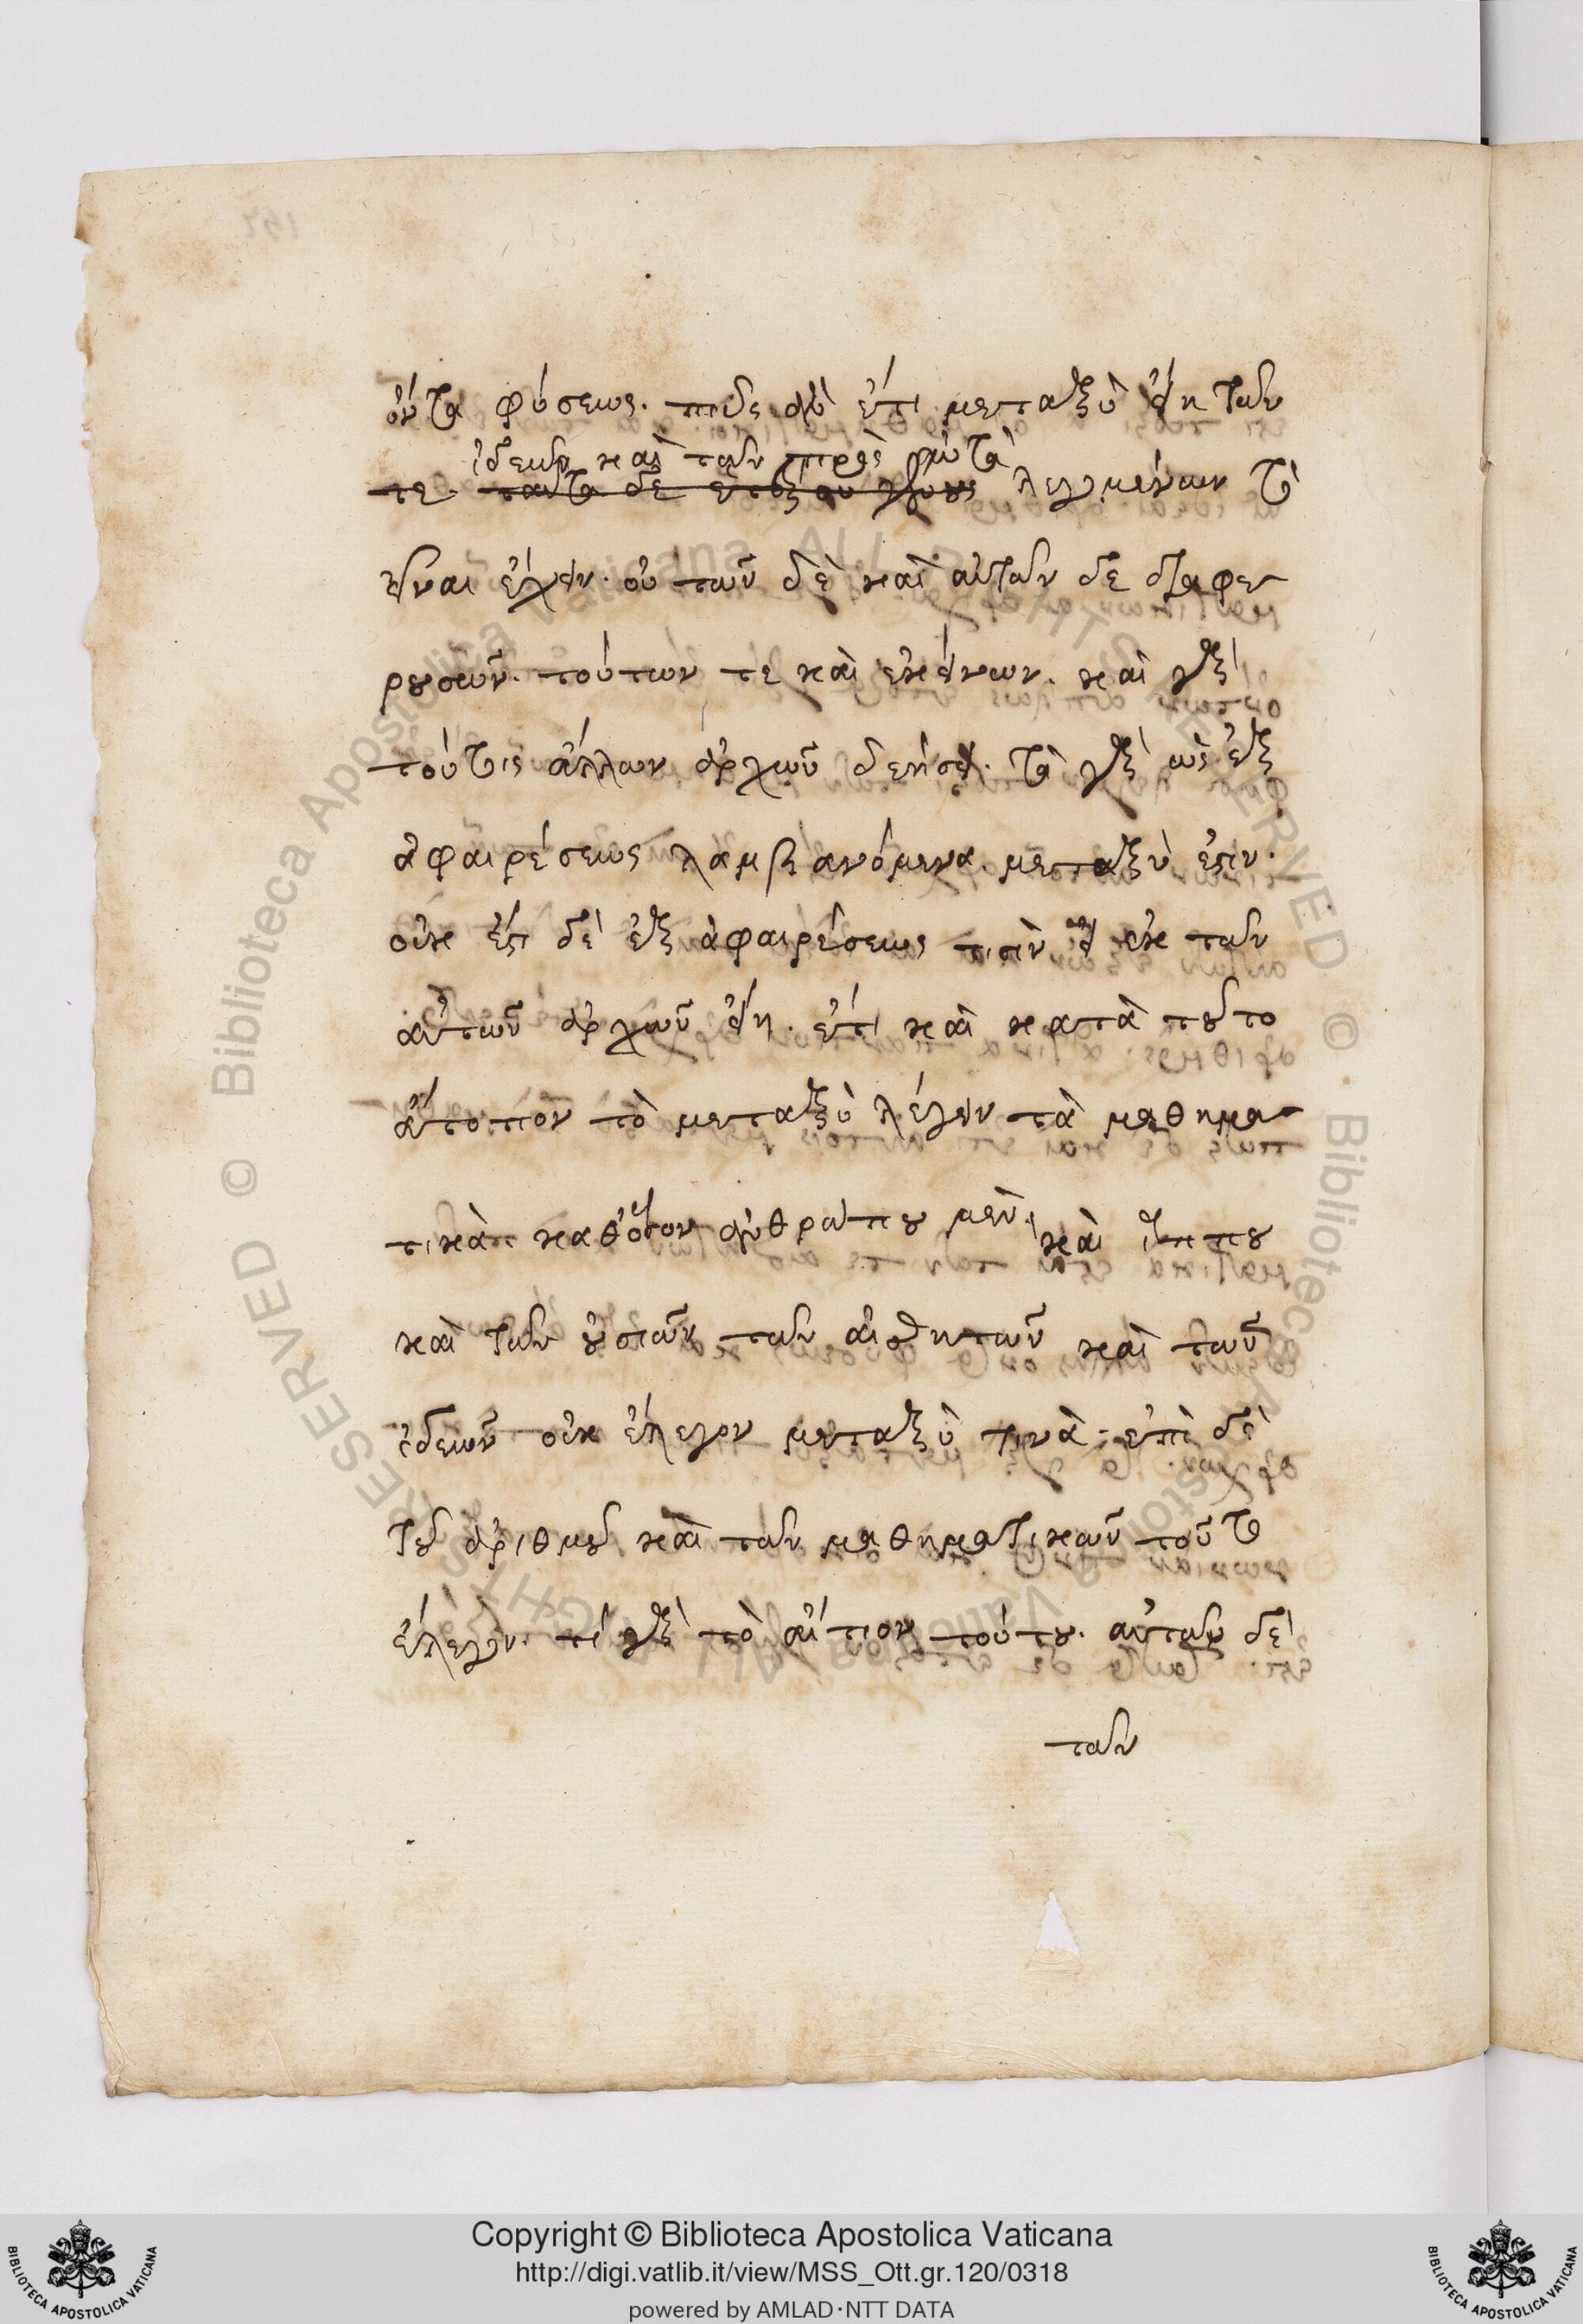 ὄντα φύσεως. πῶς ἂν ἔτι μεταξὺ εἴη τῶν
ἰδεῶν καὶ τῶν πρὸς αὐτὰ
τε. ταῦτα δὲ λεγομένων τὸ
εἶναι ἔχειν. οὐ τῶν δὲ καὶ αὐτῶν δὲ διαφε
ρουσῶν. τούτων τε καὶ ἐκείνων. καὶ γὰρ
τούτοις ἄλλων ἀρχῶν δεήσει. τὰ γὰρ ὡς ἐξ
ἀφαιρέσεως λαμβανόμενα μεταξύ ἐστιν.
οὐκ ἔστι δὲ ἐξ ἀφαιρέσεως τισὶν ἐκ τῶν
αὐτῶν ἀρχῶν εἴη. ἔτι καὶ κατὰ τοῦτο
ἄτοπον τὸ μεταξὺ λέγειν τὰ μαθημα
τικὰ καθ' ὅσον ἀνθρώπου μὲν καὶ ἵππου
καὶ τῶν οὐσιῶν τῶν αἰσθητῶν καὶ τῶν
ἰδεῶν οὐκ ἔλεγον μεταξύ τινα. ἐπὶ δὲ
τοῦ ἀριθμοῦ καὶ τῶν μαθηματικῶν τοῦτο
ἔλεγον. τί γὰρ τὸ αἴτιον τούτου. αὐτῶν δὲ
τῶν
Copyright © Biblioteca Apostolica Vaticana
http://digi.vatlib.it/view/MSS_Ott.gr.120/0318
powered by AMLAD·NTT DATA